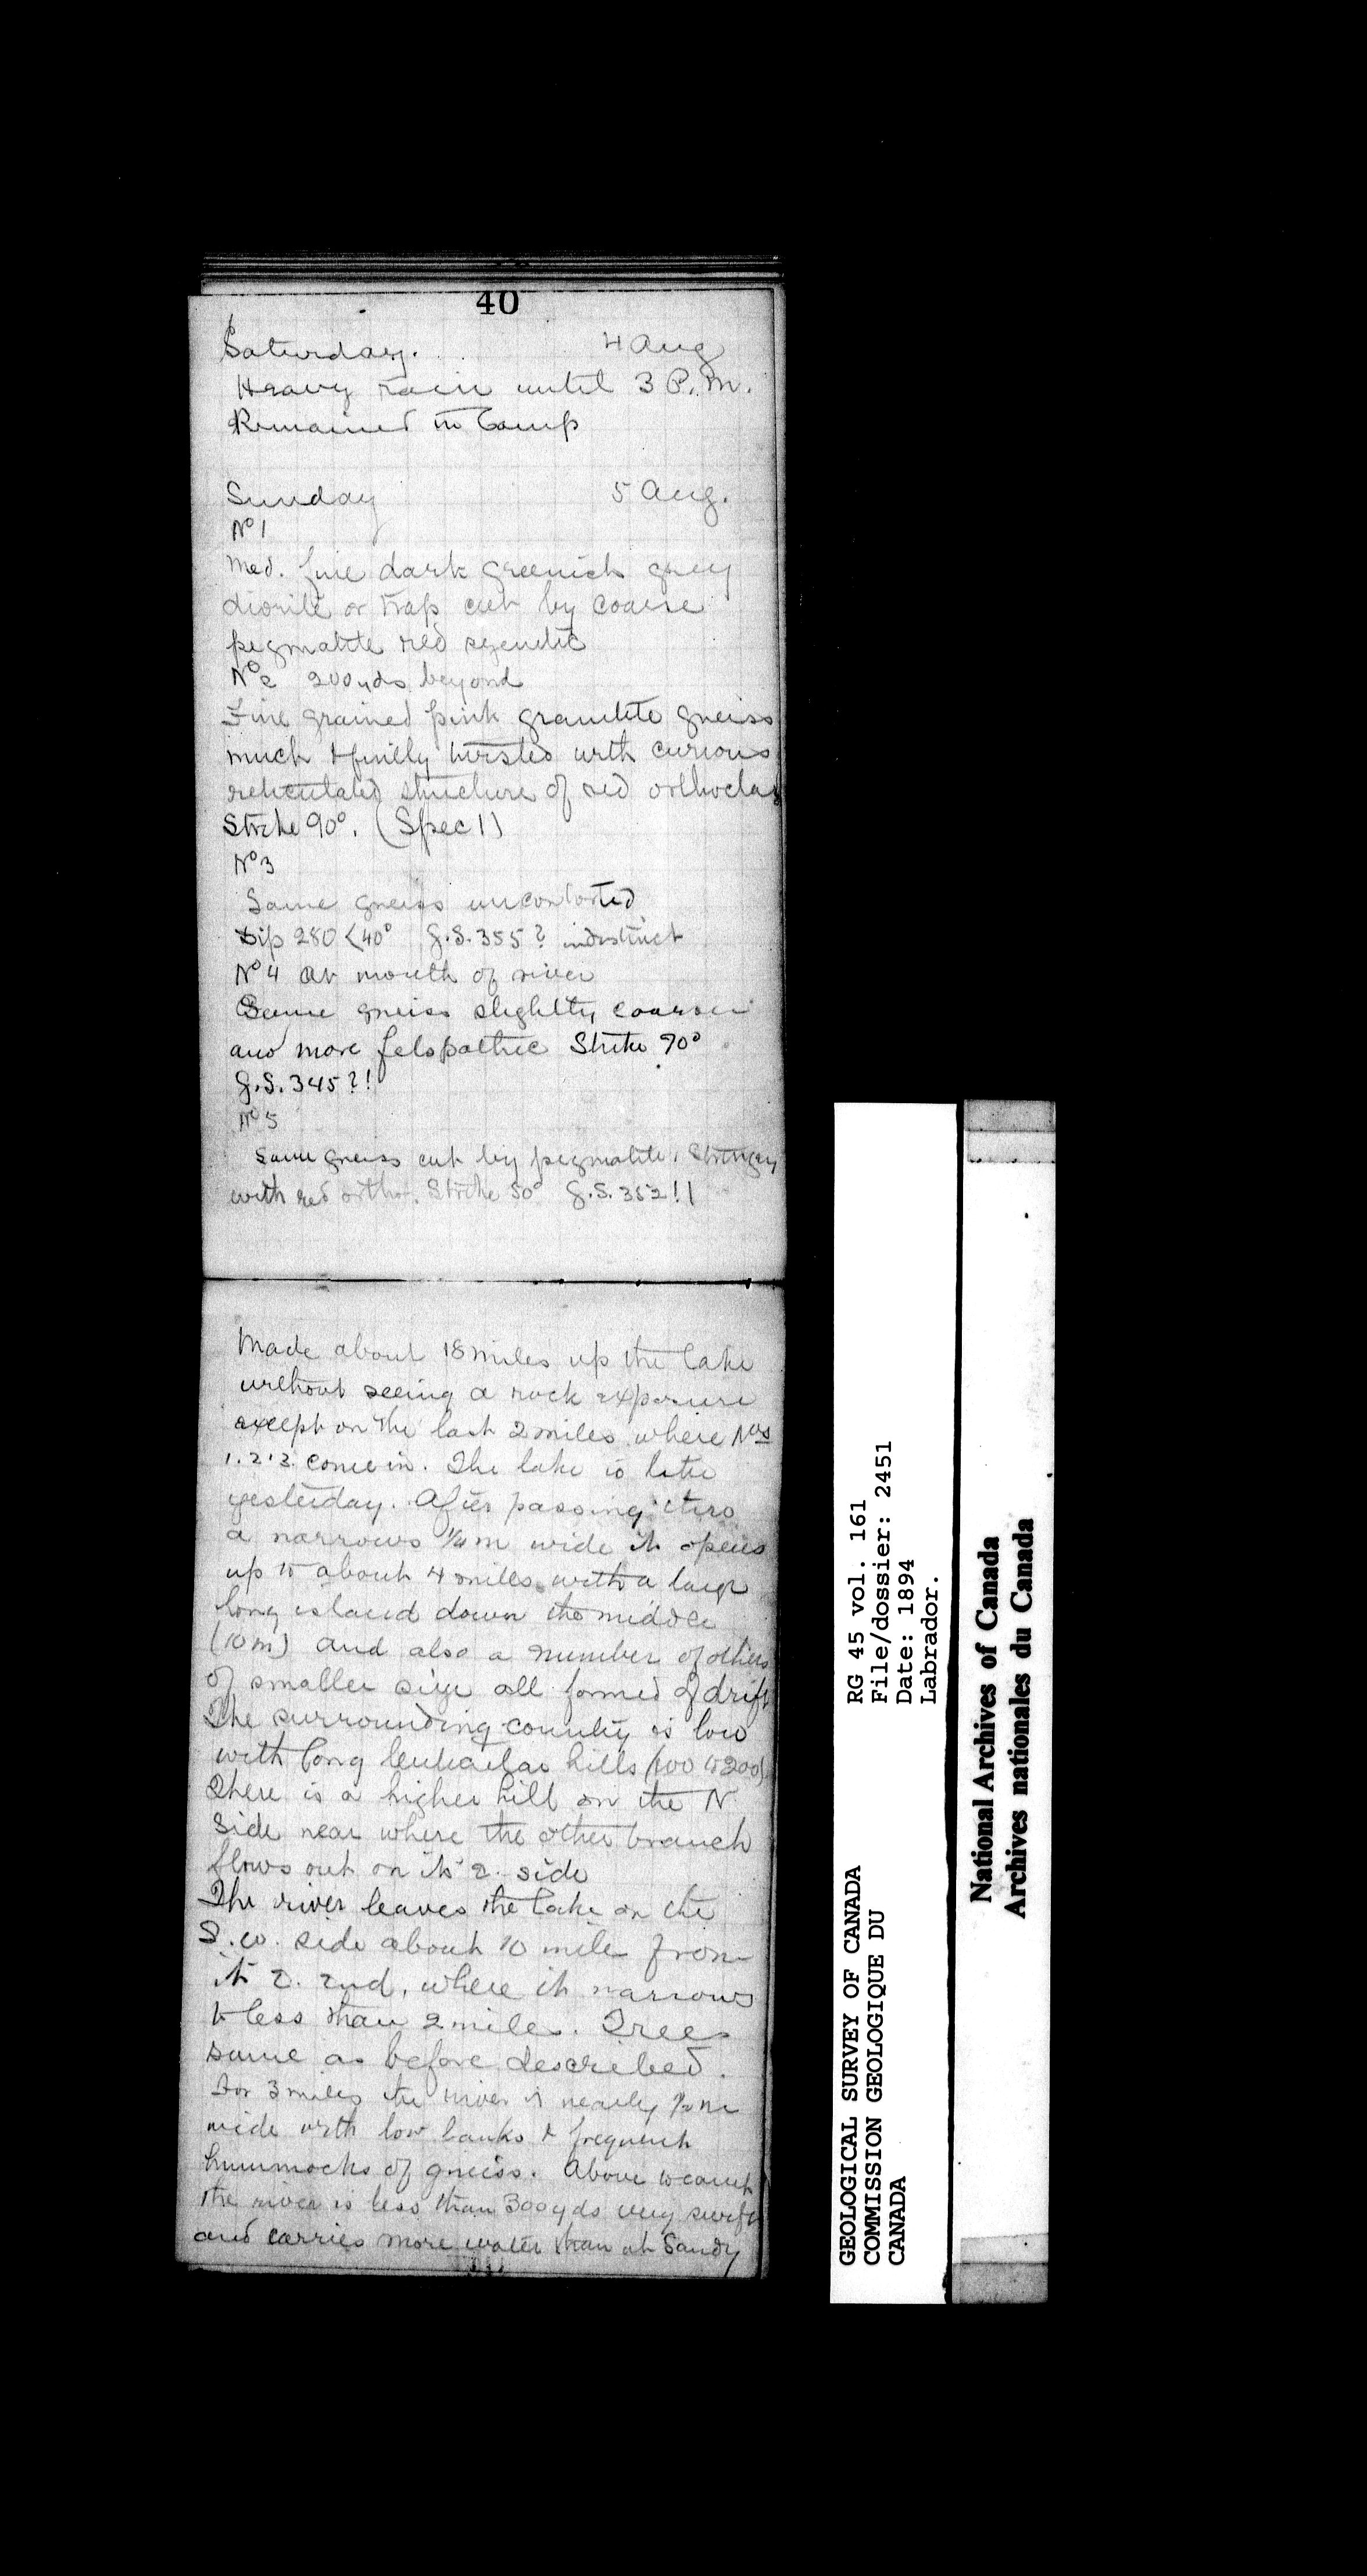 40
Saturday. 4 Aug
Heavy rain until 3 P.M.
Remained in Camp
Sunday 5 Aug.
No 1
Med. fine dark greenish grey
diorite or trap cut by coarse
pegmatite red syenitic
No 2 200 yds beyond
Fine grained pink granite gneiss
much & finely twisted with curious
reticulated structure of red orthoclas
Strike 90°. (Spec 1)
No 3
Same gneiss uncontorted
Dip 280 <40° G.S. 355? indistinct
No 4 At mouth of river
Same gneiss slightly coarser
and more felspathic Strike 70°
G.S. 345?!
No 5
Same gneiss cut by pegmatite.
with red ortho. Strike 50° G.S. 352!!
Made about 18 miles up the lake
without seeing a rock exposure
except on the last 2 miles where Nos
1. 2. 3. come in. The lake is like
yesterday. After passing thro
a narrows 1/4 m wide it opens
up to about 4 miles with a large
long island down the middle
(10 m) and also a number of others
of smaller size all formed of drift
The surrounding country is low
with long lenticular hills (100 to 200)
There is a higher hill on the N
side near where the other branch
flows out on its E. side
The river leaves the lake on the
S.W. side about 10 mile from
its E. End, where it narrows
to less than 2 miles. Trees
same as before described.
For 3 miles the river is nearly 1/2 m
wide with low banks & frequent
hummocks of gneiss. Above to camp
the river is less than 300 yds very swift
and carries more water than at Sandy
RG 45 vol. 161
File/dossier: 2451
Date: 1894
Labrador.
GEOLOGICAL SURVEY OF CANADA
COMMISSION GEOLOGIQUE DU
CANADA
National Archives of Canada
Archives nationales du Canada